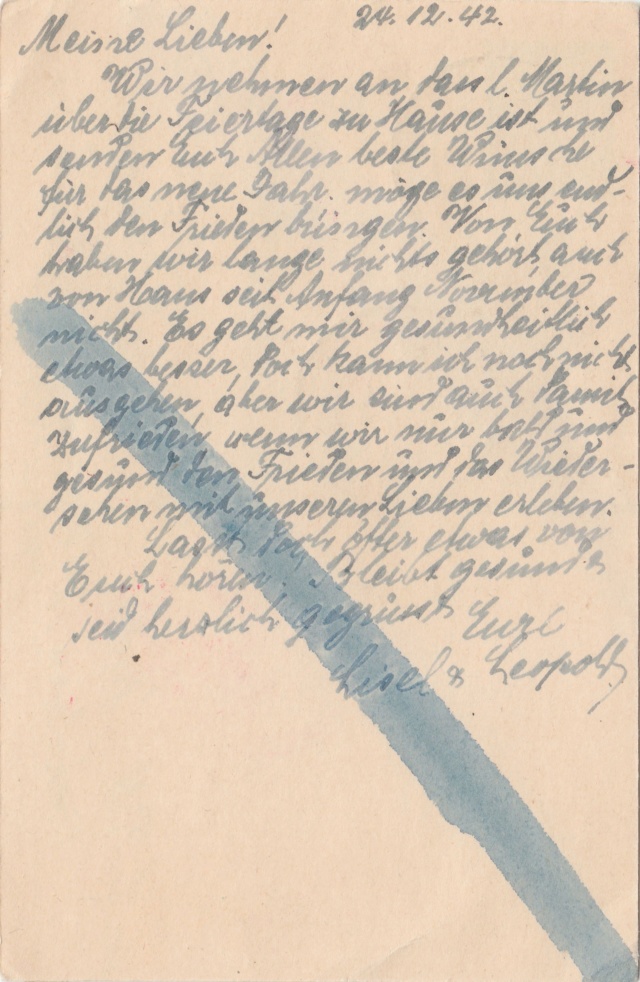 24.12.42.
Meine Lieben!
Wir nehmen an dass l. Martin
über die Feiertage zu Hause ist und
senden Euch Allen beste Wünsche
für das neue Jahr. möge es uns end-
lich den Frieden bringen. Von Euch
haben wir lange nichts gehört, auch
von Haus seit Anfang November
nicht. Es geht mir gesundheitlich
etwas besser, doch kann ich noch nicht
ausgehen, aber wir sind auch damit
zufrieden, wenn wir nur bald und
gesund den Frieden und das Wieder-
sehen mit unseren Lieben erleben.
Lasst doch öfter etwas von
Euch hören! Bleibt gesund &
seid herzlich gegrüsst Eure
Lisel & Leopold